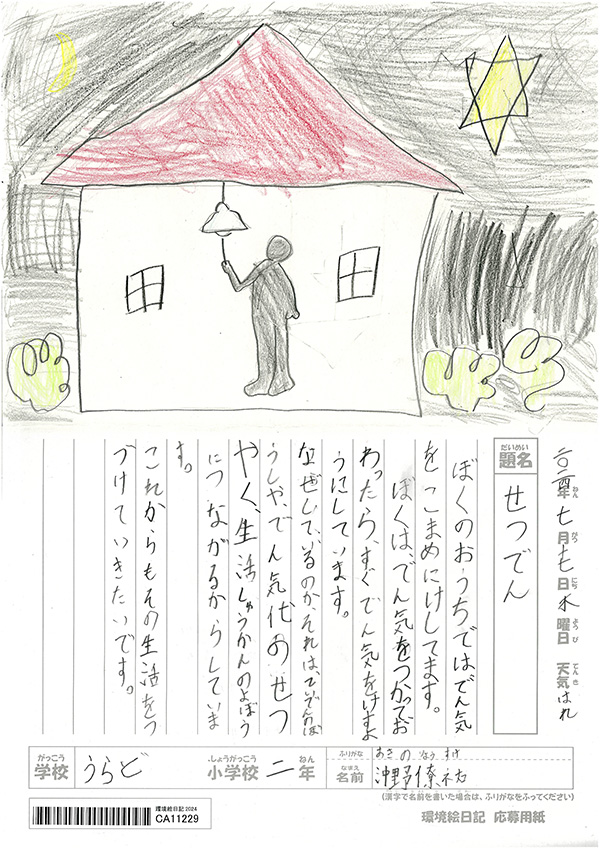 二〇二四年七月十七日水曜日 天気はれ
ねん がつ にち ようび てんき
だいめい
題名 せつでん
ぼくのおうちではでん気
をこまめにけしてます。
ぼくは、でん気をつかってお
わったら、すぐでん気をけすよ
うにしています。
なぜしているのか、それは、
うしや、でん気代のせつ
やく、生活しゅうかんのよぼう
につながるからしていま
す。
これからもその生活をつ
づけていきたいです。
がっこう しょうがっこう ねん
学校 うらど 小学校 二年
ふりがな
なまえ
名前 沖野僚祐
(漢字で名前を書いた場合は、ふりがなをふってください)
環境絵日記2024
CA11229
環境絵日記 応募用紙